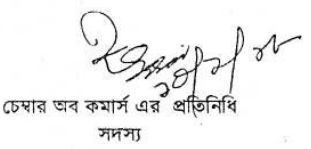 চেম্বার অব কমার্স এর প্রতিনিধি
সদস্য